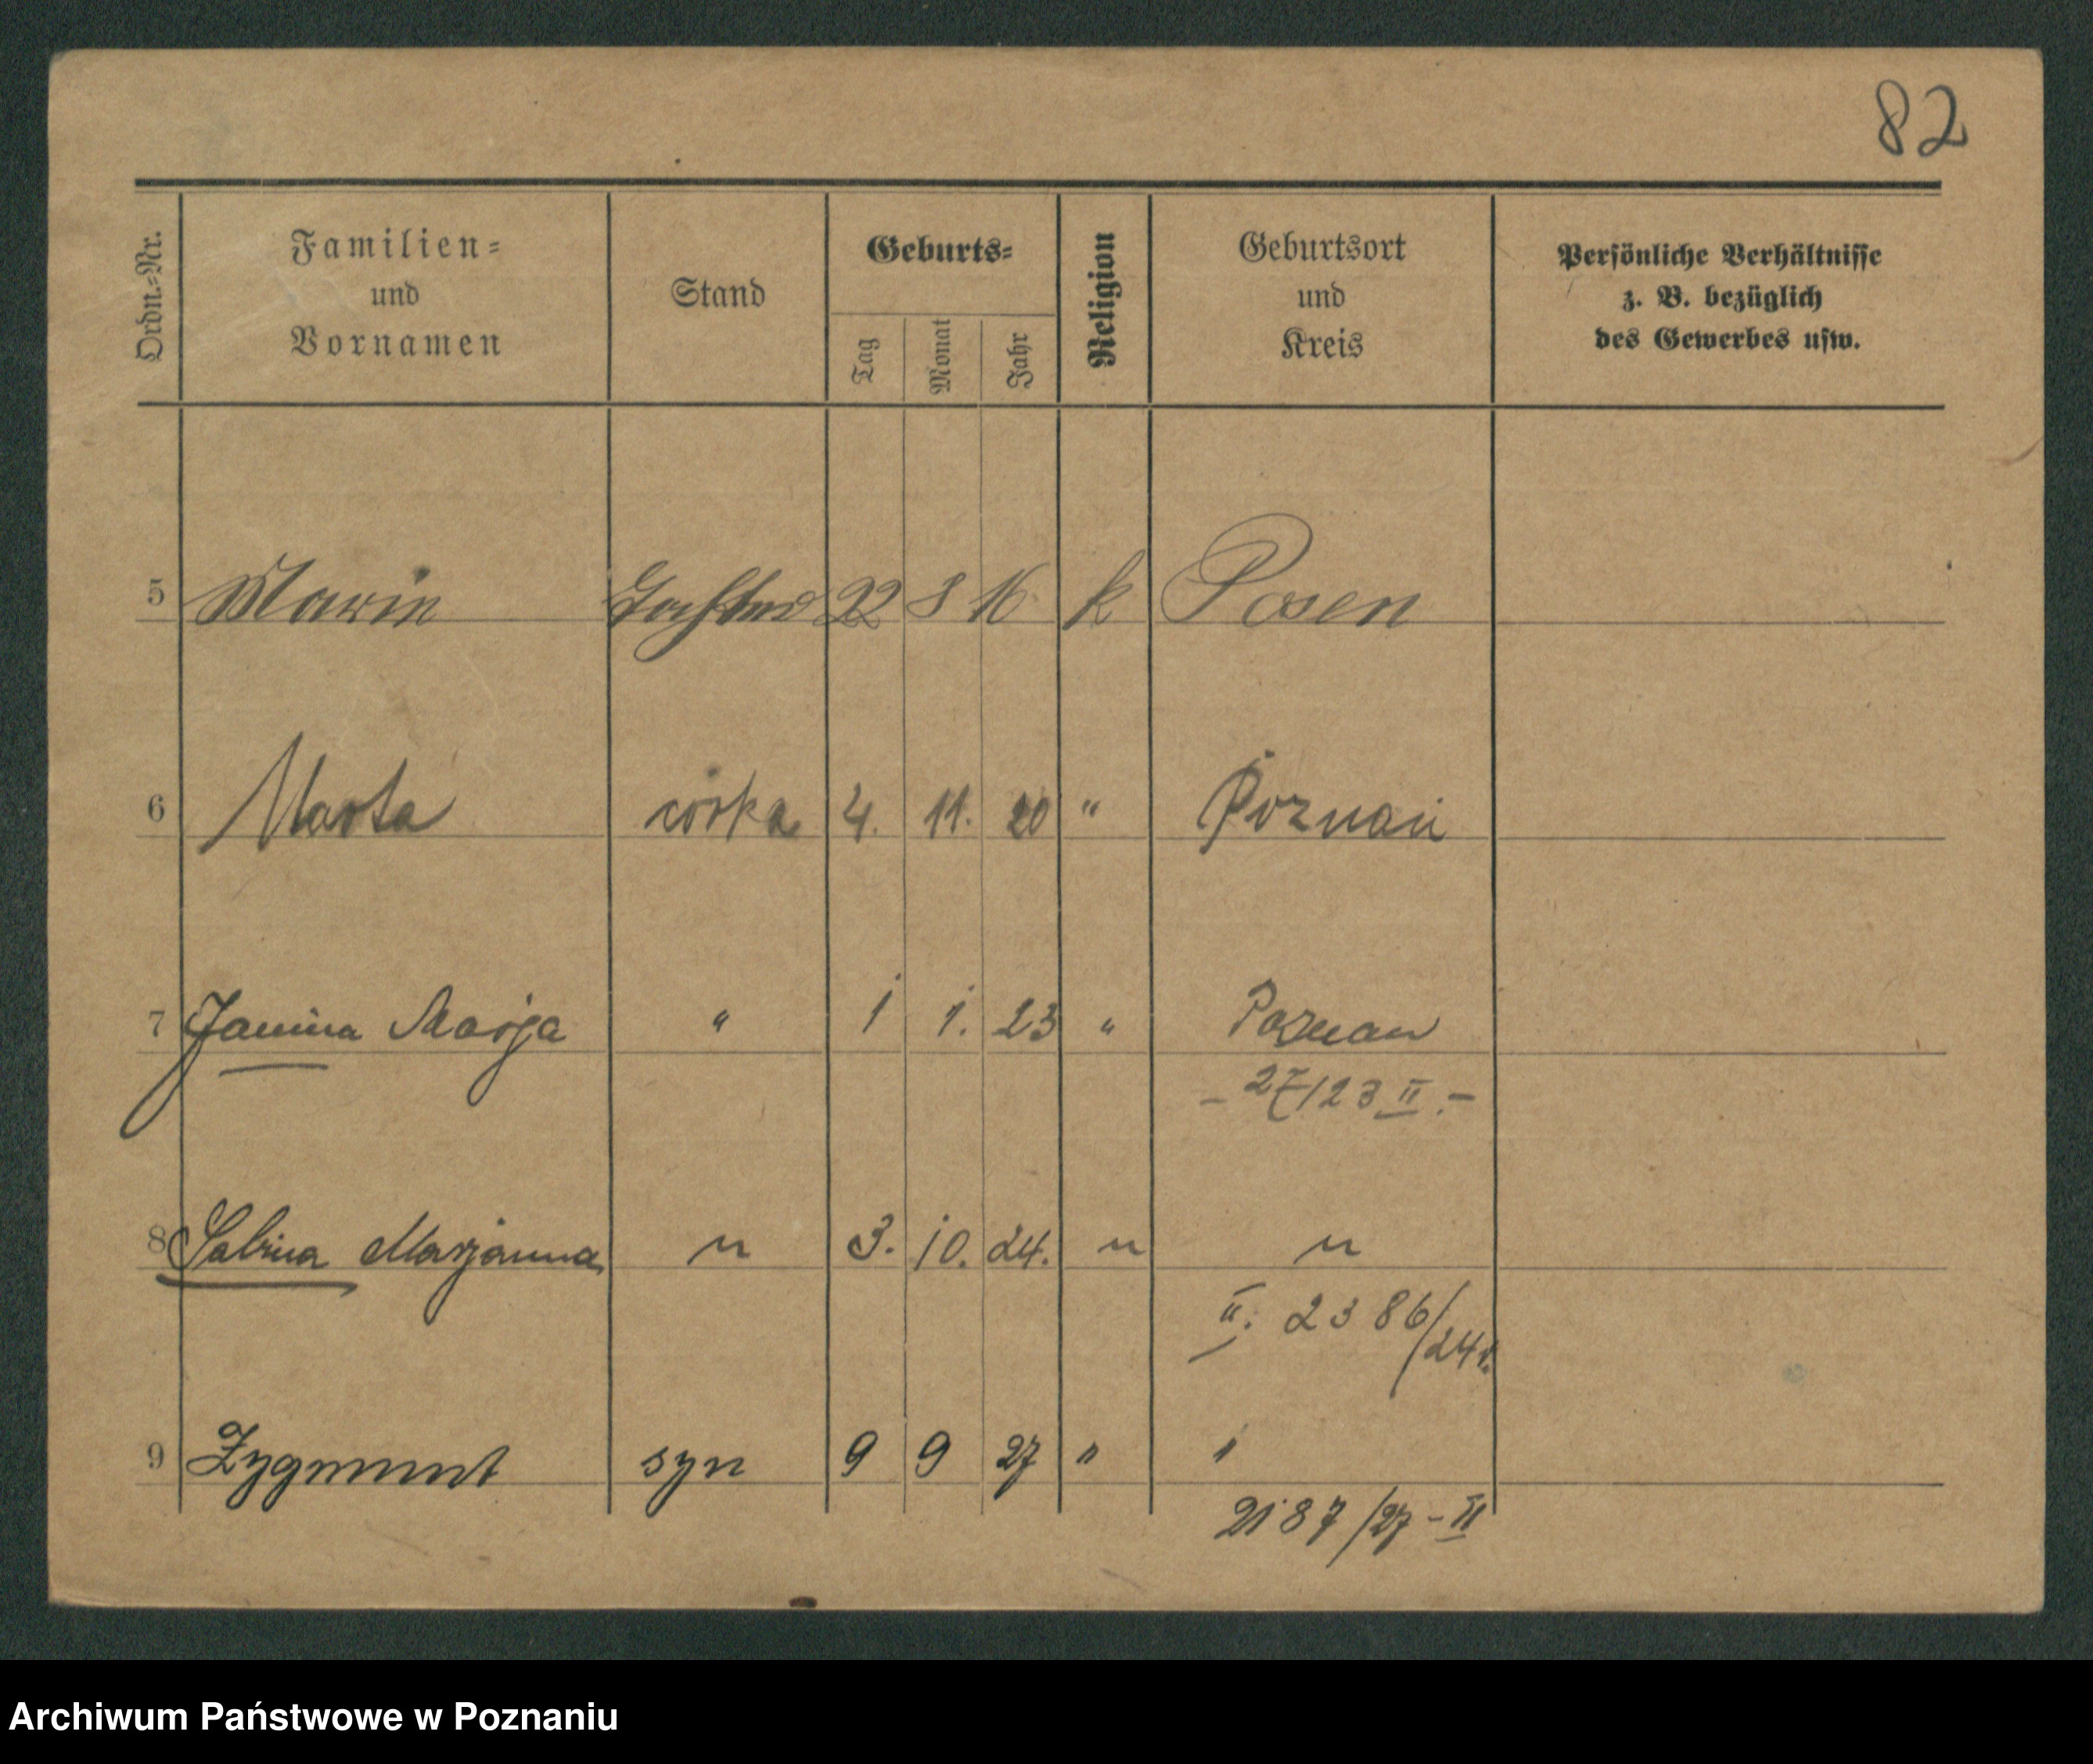 82
Ordn.-Nr. Familien- und Vornamen Stand Geburts- Tag Monat Jahr Religion Geburtsort und Kreis Persönliche Verhältnisse z. B. bezüglich des Gewerbes usw.
5 Marie 22 8 16 k Posen
6 Marta córka 4. 11. 20 " Poznań
7 Janina Marja " 1 1. 23 " Poznan
- 27/23 II.-
8 Sabina Marjanna " 3. 10. 24. " "
II: 2386/24r.
9 Zygmunt syn 9 9 27 " "
2187/27-II
Archiwum Państwowe w Poznaniu